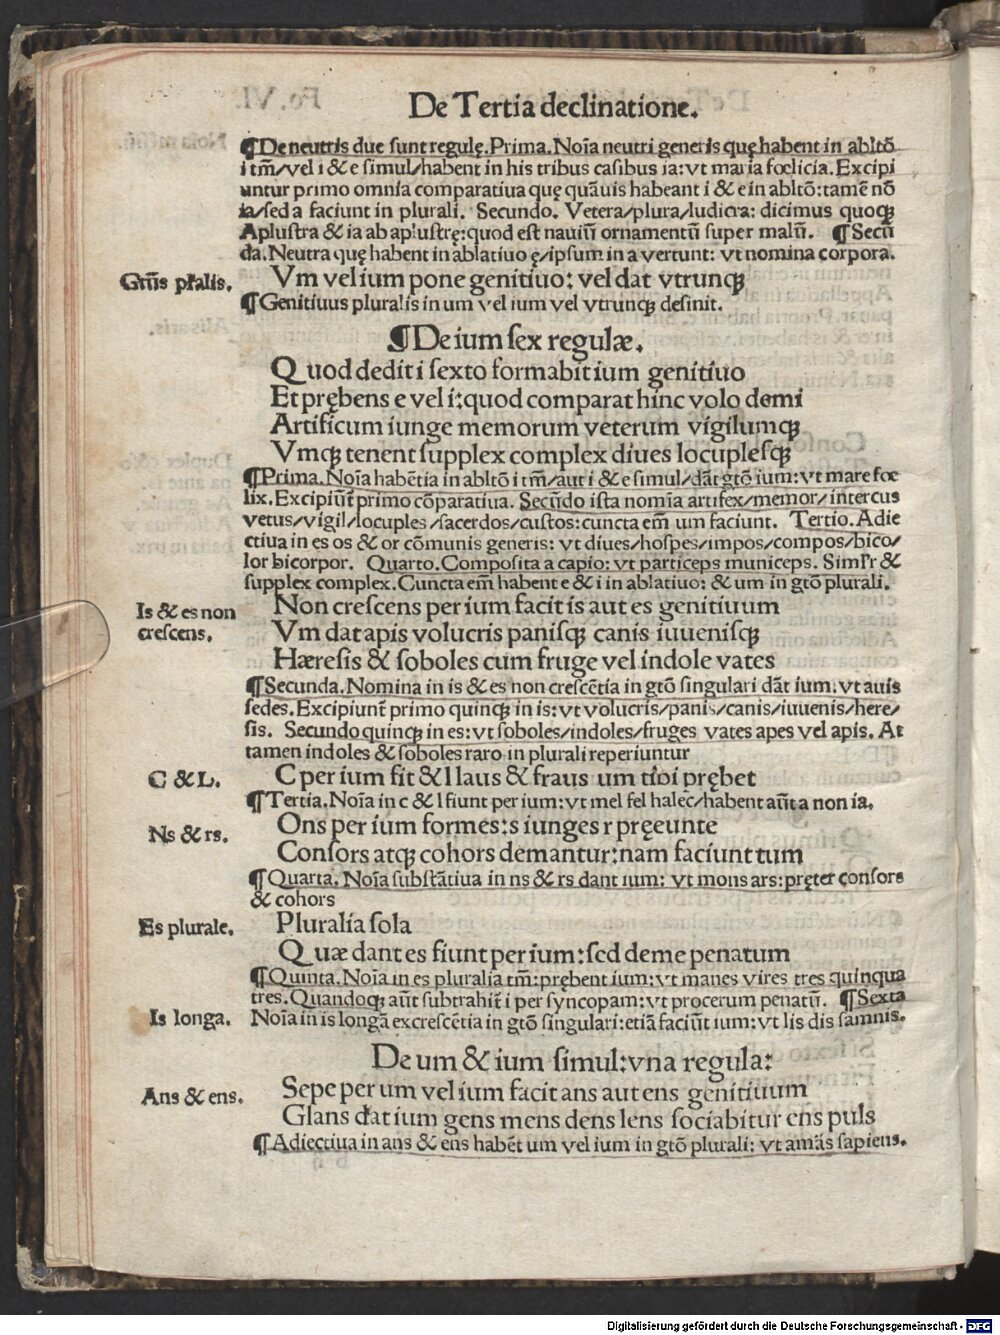 De Tertia declinatione.
¶De neutris due sunt regulę. Prima. Noīa neutri generis quę habent in abltō
i tm̄/vel i & e simul/habent in his tribus casibus ia: vt maria fœlicia. Excipi
untur primo omnia comparatiua quę quāuis habeant i & e in abltō: tamē nō
ia/sed a faciunt in plurali. Secundo. Vetera/plura/ludicra: dicimus quoqꝫ
Aplustra & ia ab aplustrę: quod est nauiū ornamentū super malū. ¶Secū
da. Neutra quę habent in ablatiuo ę/ipsum in a vertunt: vt nomina corpora.
Gtūs płalis. Vm vel ium pone genitiuo: vel dat vtrunqꝫ
¶Genitiuus pluralis in um vel ium vel vtrunqꝫ desinit.
¶De ium sex regulæ.
Quod dedit i sexto formabit ium genitiuo
Et prębens e vel i: quod comparat hinc volo demi
Artificum iunge memorum veterum vigilumqꝫ
Vmqꝫ tenent supplex complex diues locuplesqꝫ
¶Prima. Noīa habētia in abltō i tm̄/aut i & e simul/dāt gtō ium: vt mare fœ
lix. Excipiūt̄ primo cōparatiua. Secūdo ista nomīa artifex/memor/intercus
vetus/vigil/locuples/sacerdos/custos: cuncta em̄ um faciunt. Tertio. Adie
ctiua in es os & or cōmunis generis: vt diues/hospes/impos/compos/bico/
lor bicorpor. Quarto. Composita a capio: vt particeps municeps. Simłr &
supplex complex. Cuncta em̄ habent e & i in ablatiuo: & um in gtō plurali.
Is & es non
crescens.
Non crescens per ium facit is aut es genitiuum
Vm dat apis volucris panisqꝫ canis iuuenisqꝫ
Hæresis & soboles cum fruge vel indole vates
¶Secunda. Nomina in is & es non crescētia in gtō singulari dāt ium. vt auis
sedes. Excipiunt̄ primo quinqꝫ in is: vt volucris/panis/canis/iuuenis/here/
sis. Secundo quinqꝫ in es: vt soboles/indoles/fruges vates apes vel apis. At
tamen indoles & soboles raro in plurali reperiuntur
C & L. C per ium fit & l laus & fraus um tibi prębet
¶Tertia. Noīa in c & l fiunt per ium: vt mel fel halec/habent aūt a non ia.
Ns & rs. Ons per ium formes: s iunges r pręeunte
Consors atqꝫ cohors demantur: nam faciunt tum
¶Quarta. Noīa substātiua in ns & rs dant ium: vt mons ars: pręter consors
& cohors
Es plurale. Pluralia sola
Quæ dant es fiunt per ium: sed deme penatum
¶Quinta. Noīa in es pluralia tm̄: prębent ium: vt manes vires tres quinqua
tres. Quandoqꝫ aūt subtrahit̄ i per syncopam: vt procerum penatū. ¶Sexta
Is longa. Noīa in is longā excrescētia in gtō singulari: etiā faciūt ium: vt lis dis samnis.
De um & ium simul: vna regula:
Ans & ens. Sepe per um vel ium facit ans aut ens genitiuum
Glans dat ium gens mens dens lens sociabitur ens puls
¶Adiectiua in ans & ens habēt um vel ium in gtō plurali: vt amās sapiens.
Digitalisierung gefördert durch die Deutsche Forschungsgemeinschaft - DFG